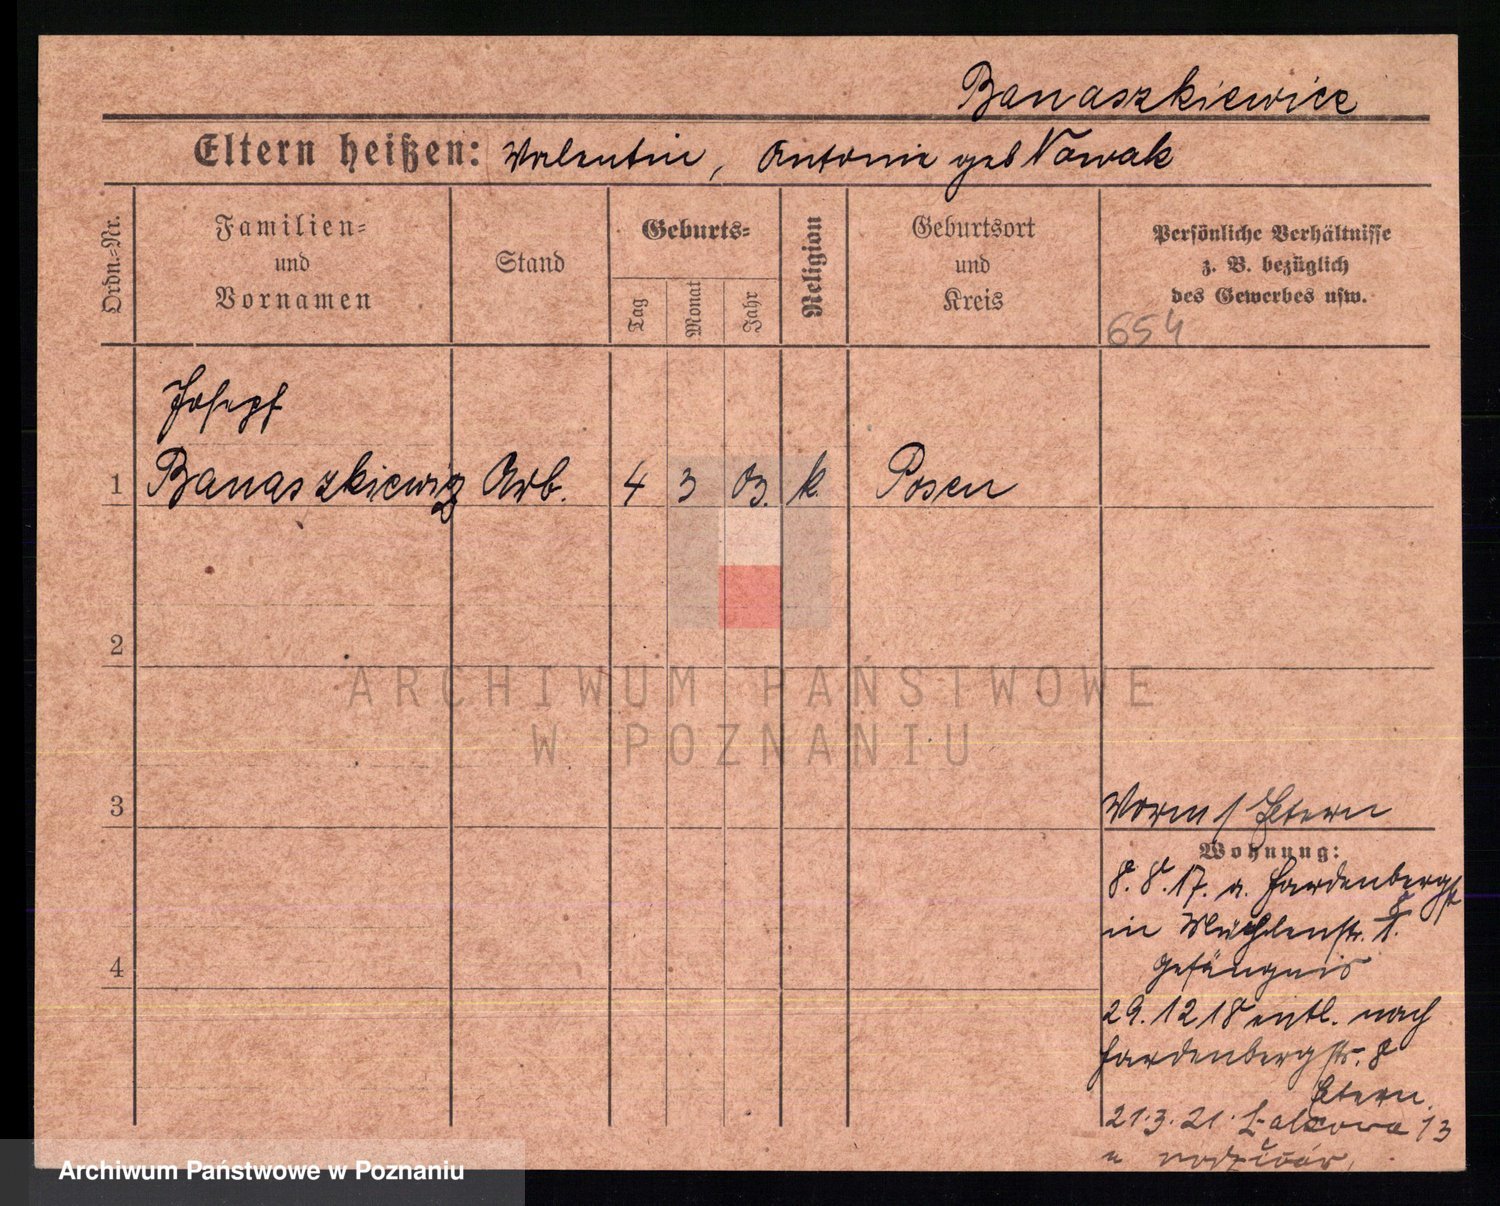 Banaszkiewicz
Eltern heißen: Valentin, Antonie geb Nowak
Ordn.-Nr.
Familien-
und
Vornamen
Stand
Geburts-
Tag
Monat
Jahr
Religion
Geburtsort
und
Kreis
Persönliche Verhältnisse
z. B. bezüglich
des Gewerbes usw.
654
Josepf
1 Banaszkiewicz Arb. 4 3 03. k. Posen
2
ARCHIWUM PAŃSTWOWE
W POZNANIU
3
Vorm / Eltern
Wohnung:
8. 8. 17. a. Hardenbergst
in Mühlenstr.
Gefängnis
4
29. 12 18 entl. nach
Hardenbergstr. 8
Eltern.
21.3.21. Łąkowa 13
u rodziców,
Archiwum Państwowe w Poznaniu